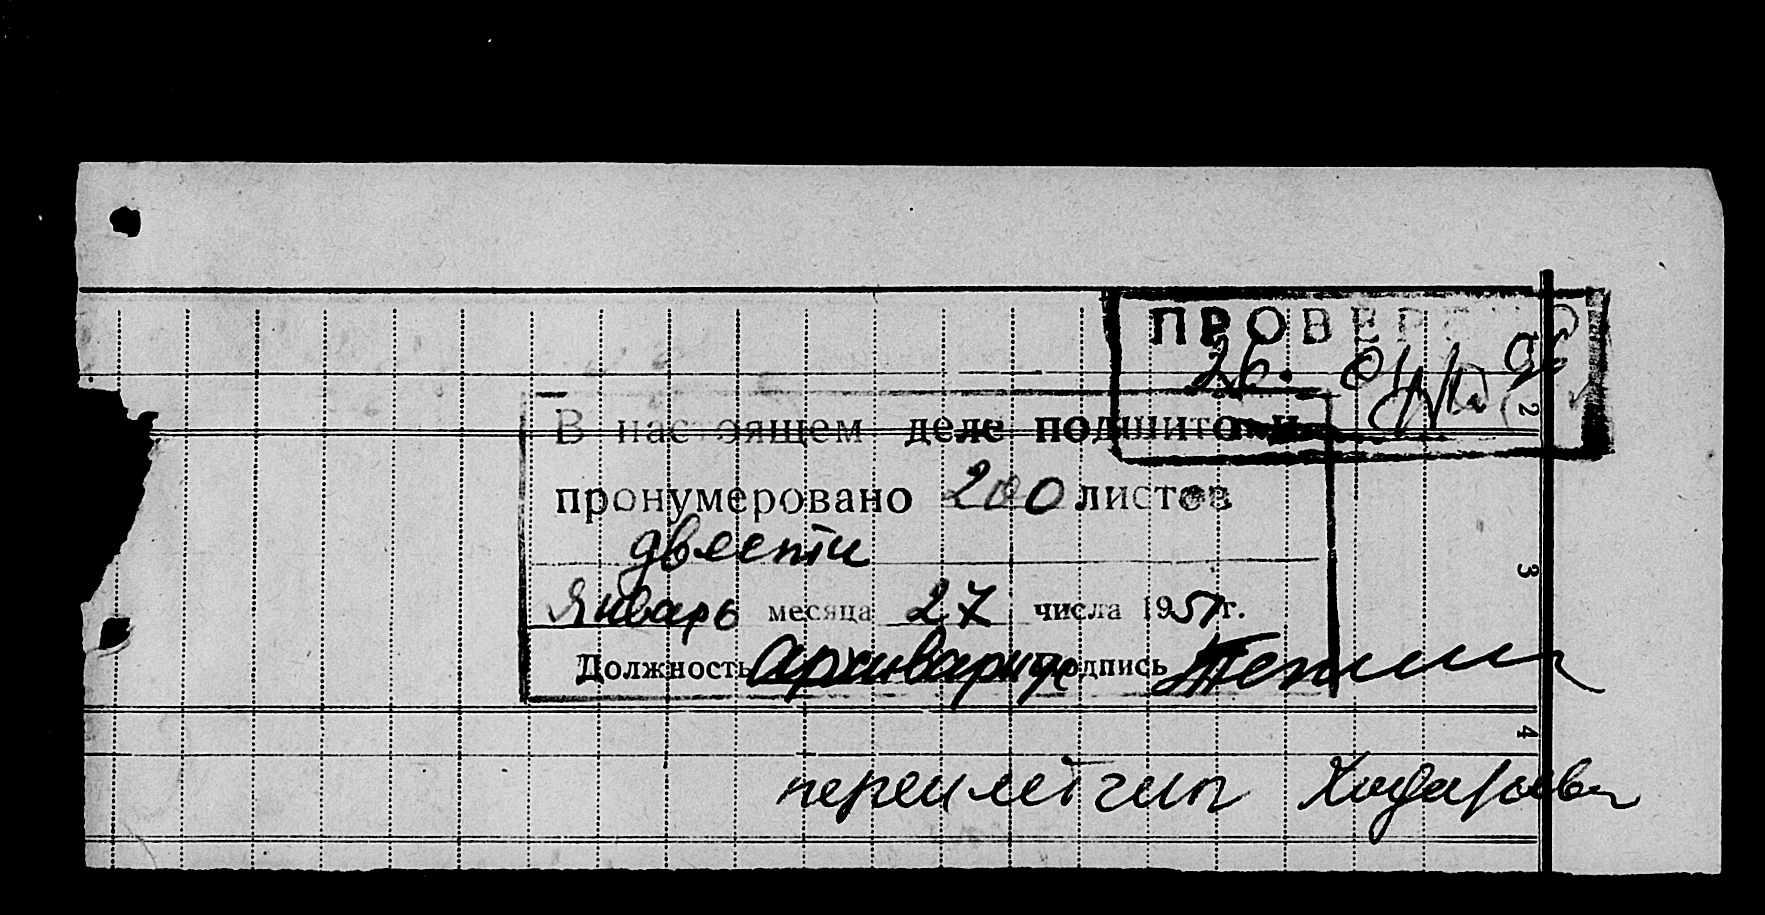 ПРОВЕРЕНО
26.
2
В настоящем деле подшито и
пронумеровано 200 листов
двести
3
Январь месяца 27 числа 1951 г.
Должность Архивариус Подпись
4
переплётчик